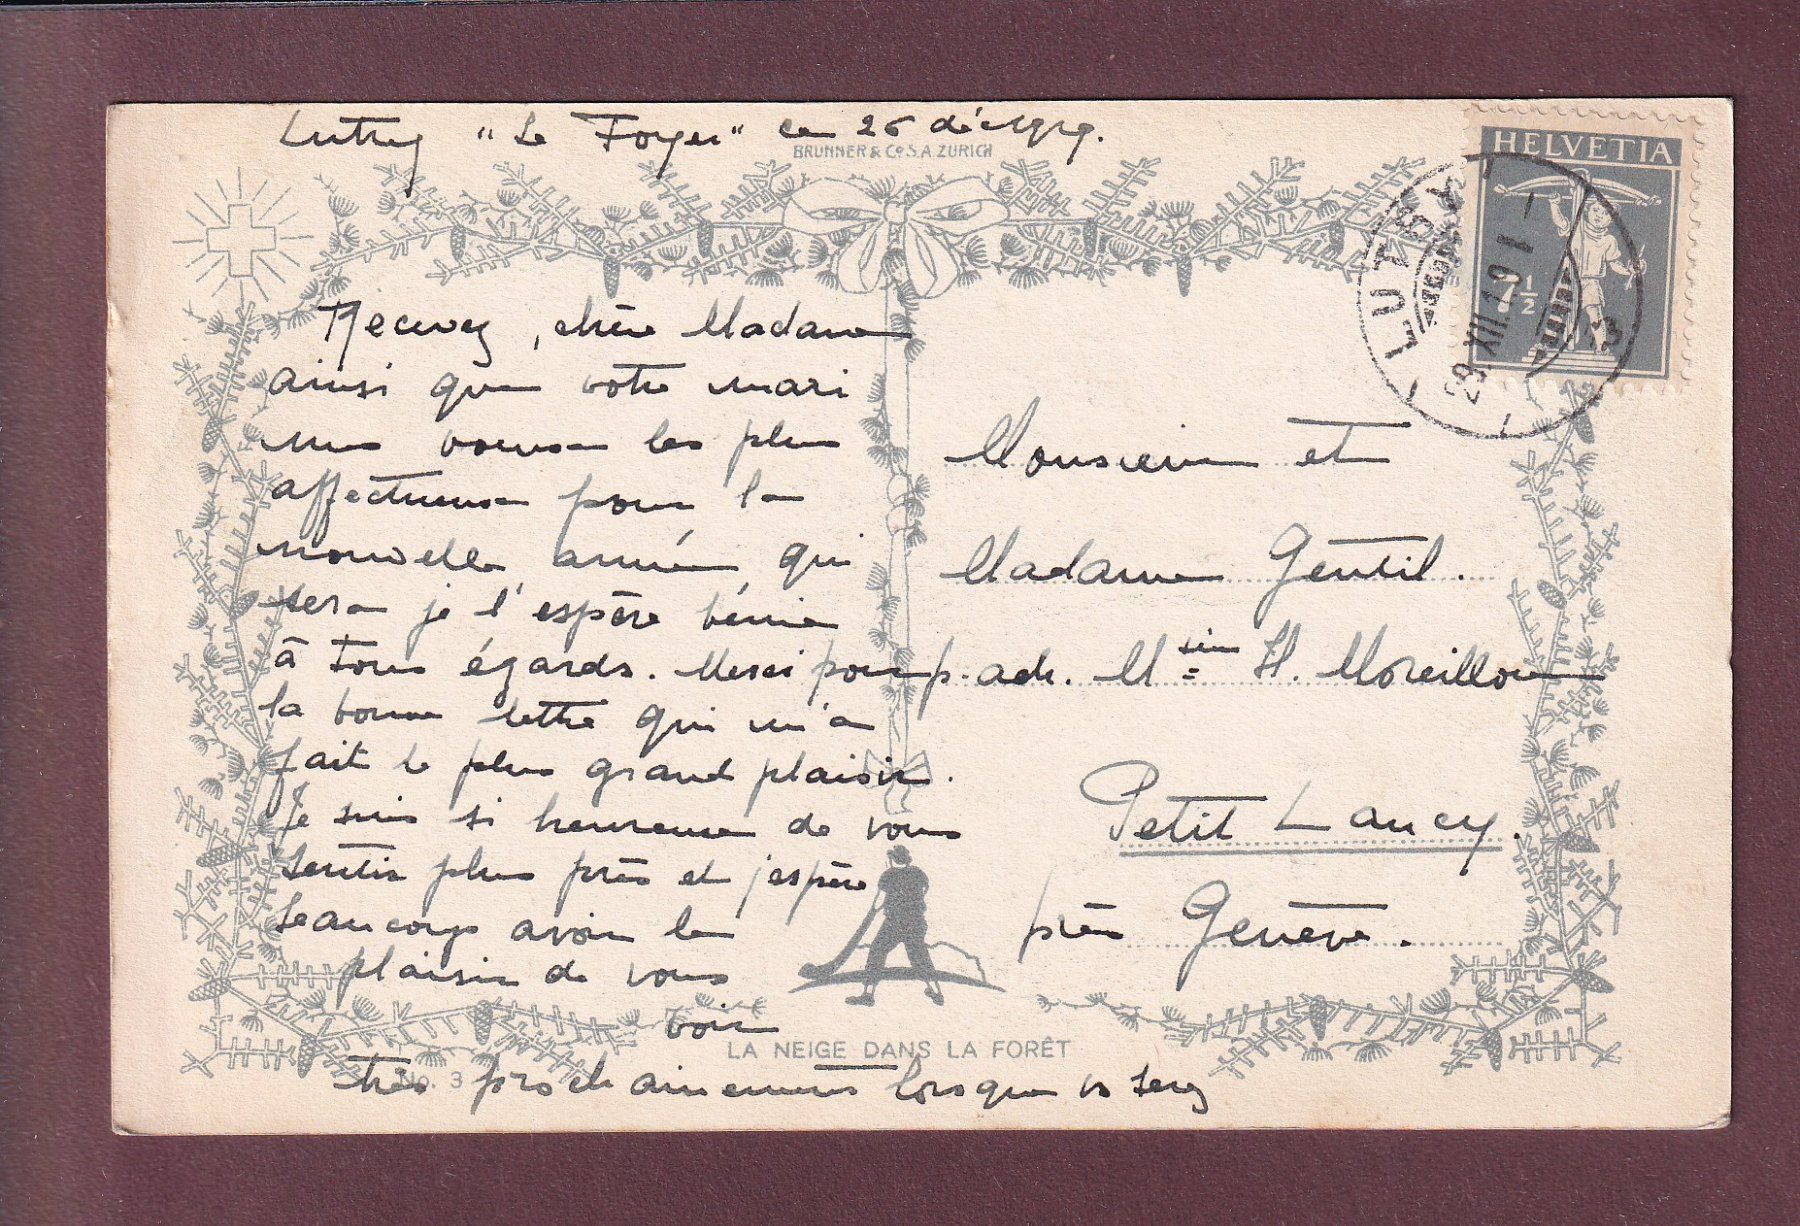 Lutry "Le Foyer" ce 26 déc 1919.
BRUNNER & Co S.A. ZURICH
HELVETIA
7½
LUTRY
29. XII. 19
Recevez, chère Madame
ainsi que votre mari
mes voeux les plus
affectueux pour la
nouvelle année, qui
sera je l'espère bénie
à tous égards. Merci pour
la bonne lettre qui m'a
fait le plus grand plaisir.
Je suis si heureuse de vous
sentir plus près et j'espère
beaucoup avoir le
plaisir de vous
voir
très prochainement lorsque vs serez
Monsieur et
Madame Gentil.
p. adr. Msieur H. Moreillon
Petit Lancy.
près Genève.
LA NEIGE DANS LA FORÊT
No. 3